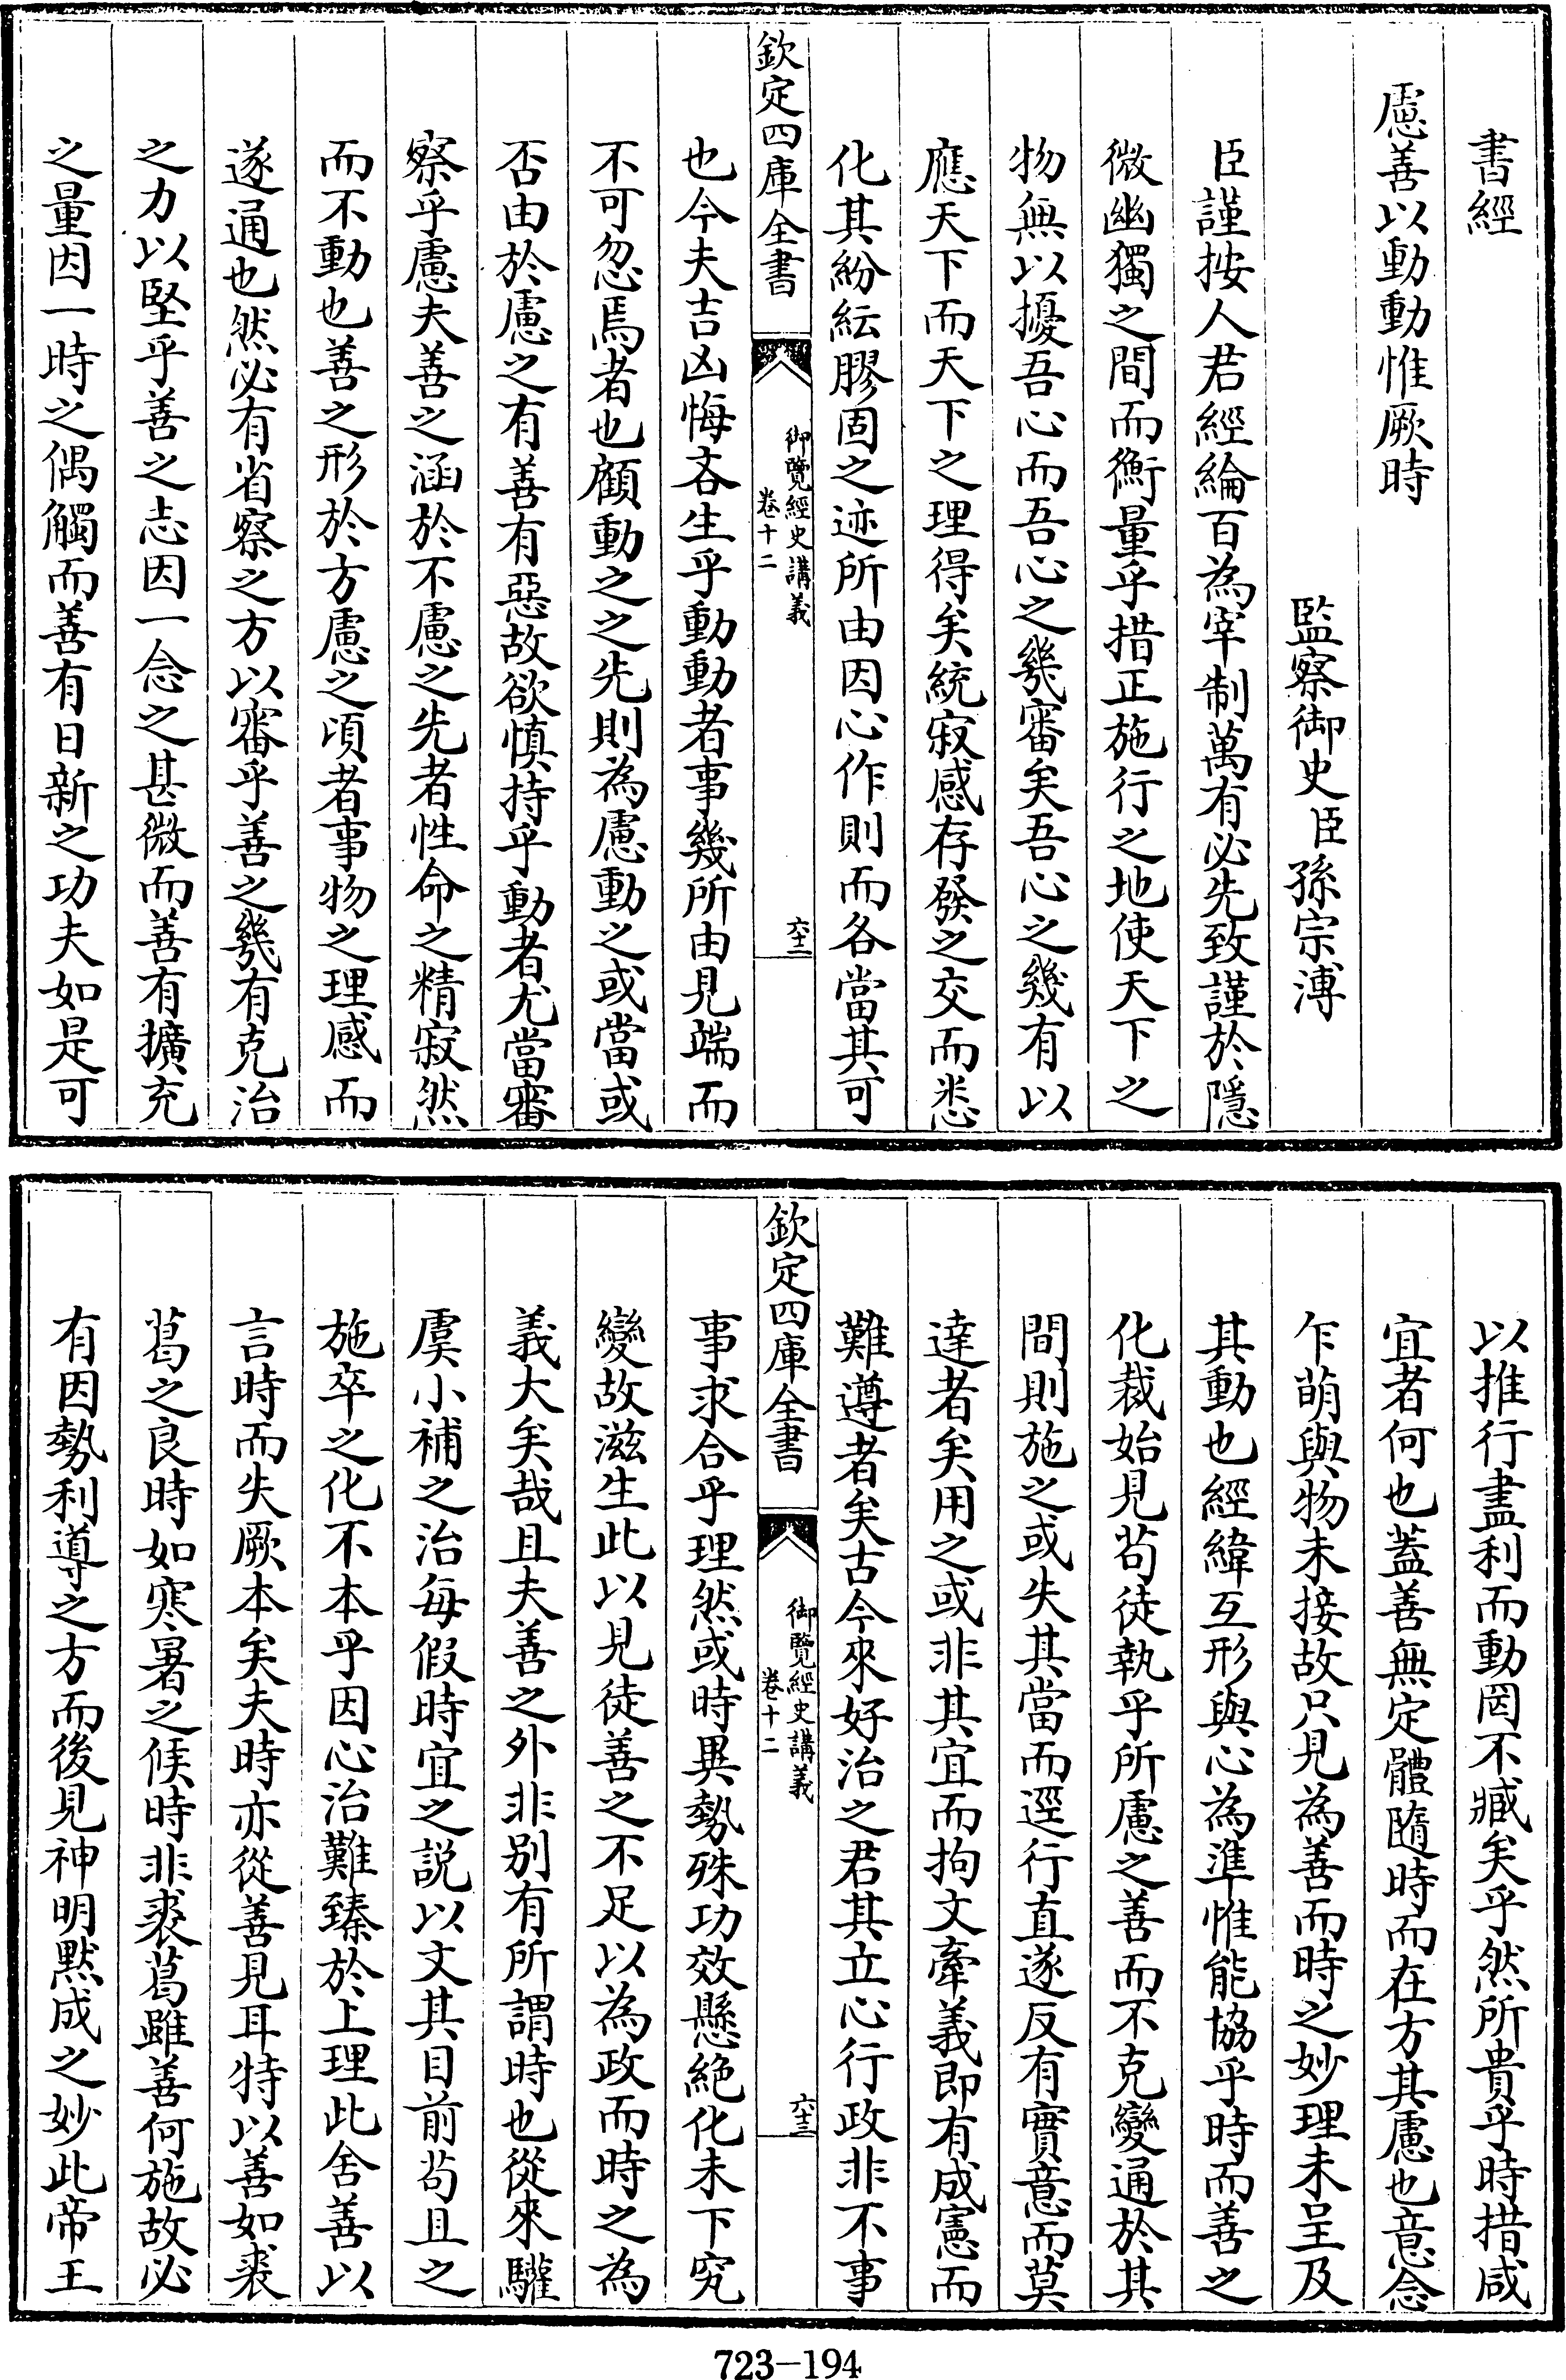 書經
慮善以動動惟厥時
監察御史臣孫宗溥
臣謹按人君經綸百為宰制萬有必先致謹於隱
微幽獨之間而衡量乎措正施行之地使天下之
物無以擾吾心而吾心之幾審矣吾心之幾有以
應天下而天下之理得矣統寂感存發之交而悉
化其紛紜膠固之迹所由因心作則而各當其可
欽定四庫全書
御覽經史講義
卷十二
六十二
也今夫吉凶悔吝生乎動動者事幾所由見端而
不可忽焉者也顧動之之先則為慮動之或當或
否由於慮之有善有惡故欲慎持乎動者尤當審
察乎慮夫善之涵於不慮之先者性命之精寂然
而不動也善之形於方慮之頃者事物之理感而
遂通也然必有省察之方以審乎善之幾有克治
之力以堅乎善之志因一念之甚微而善有擴充
之量因一時之偶觸而善有日新之功夫如是可
以推行盡利而動罔不臧矣乎然所貴乎時措咸
宜者何也蓋善無定體隨時而在方其慮也意念
乍萌與物未接故只見為善而時之妙理未呈及
其動也經緯互形與心為準惟能協乎時而善之
化裁始見茍徒執乎所慮之善而不克變通於其
間則施之或失其當而逕行直遂反有實意而莫
達者矣用之或非其宜而拘文牽義即有成憲而
難遵者矣古今來好治之君其立心行政非不事
欽定四庫全書
御覽經史講義
卷十二
六十三
事求合乎理然或時異勢殊功效懸絶化未下究
變故滋生此以見徒善之不足以為政而時之為
義大矣哉且夫善之外非别有所謂時也從來驩
虞小補之治每假時宜之説以文其目前茍且之
施卒之化不本乎因心治難臻於上理此舍善以
言時而失厥本矣夫時亦從善見耳特以善如裘
葛之良時如寒暑之候時非裘葛雖善何施故必
有因勢利導之方而後見神明黙成之妙此帝王
723-194